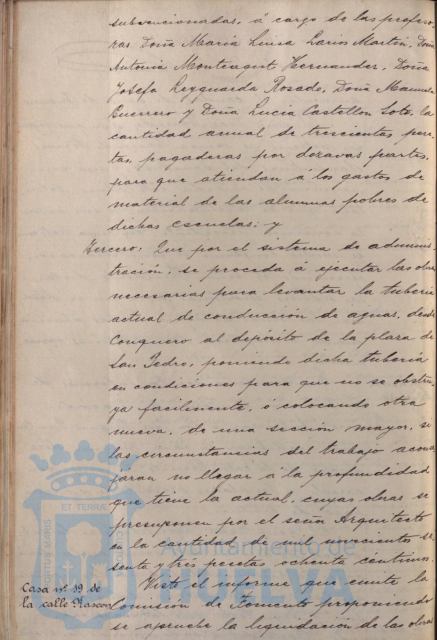 subvencionadas, á cargo de las profeso
ras Doña María Luisa Larios Martin, Doña
Antonia Hernandez, Doña
Josefa Leyguarda Rosado, Doña Manuela
Guerrero y Doña Lucia Castellon Soto, la
cantidad anual de trescientas pese
tas, pagaderas por dozavas partes,
para que atiendan á los gastos de
material de las alumnas pobres de
dichas escuelas; y
Tercero: Que por el sistema de adminis
tración, se proceda á ejecutar las obras
necesarias para levantar la tuberia
actual de conducción de aguas, desde
Conquero al depósito de la plaza de
San Pedro, poniendo dicha tuberia
en condiciones para que no se obstru
ya facilmente, ó colocando otra
nueva, de una sección mayor, si
las circunstancias del trabajo acon
jaran no llegar á la profundidad
que tiene la actual, cuyas obras se
presuponen por el señor Arquitecto
en la cantidad de mil novecientas se
senta y tres pesetas ochenta céntimos.
Casa nº 19 de
la calle Rascon
Visto el informe que emite la
Comisión de Fomento proponiendo
se apruebe la liquidación de las obras
Ayuntamiento de
HUELVA
PORTUS MARIS
ET TERRAE
CUSTODIA